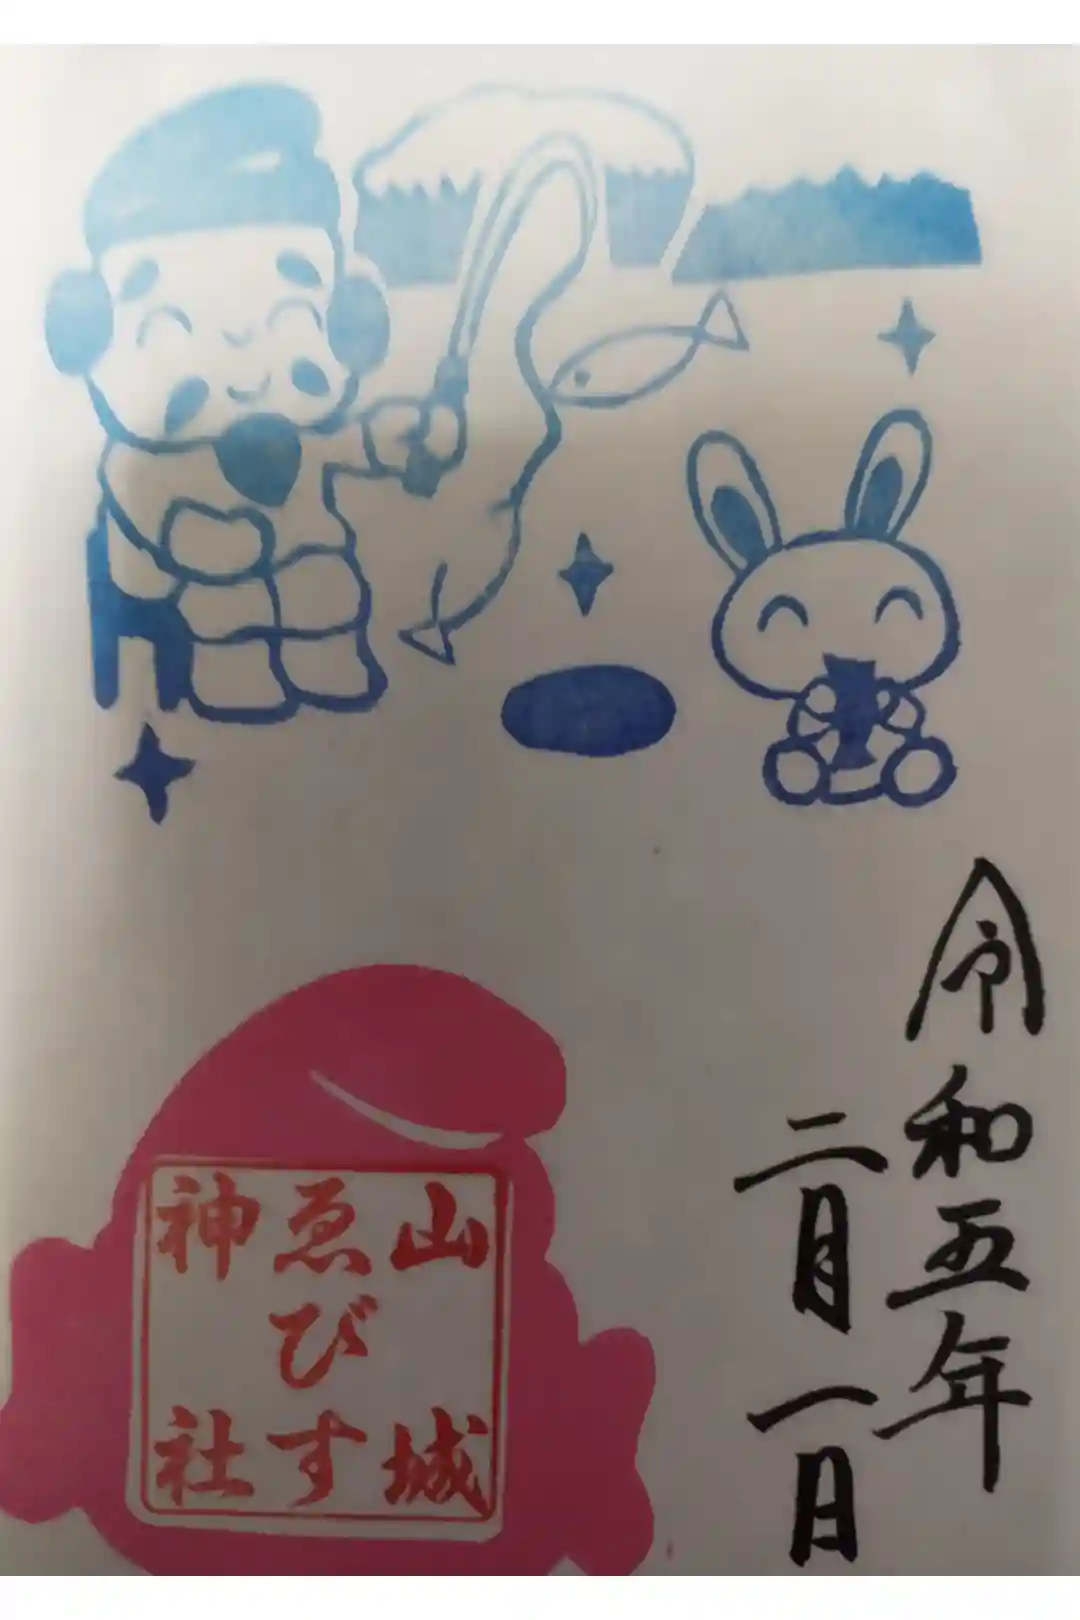 令和五年
二月一日
山城
ゑびす
神社